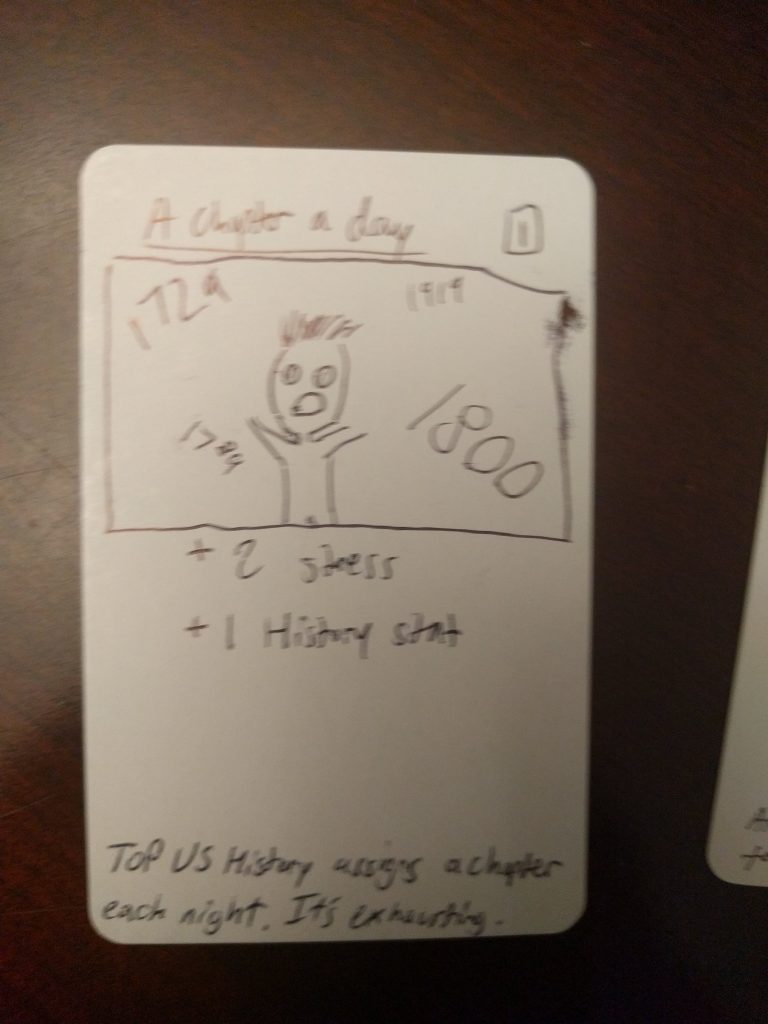 A chapter a day
1
1729
1919
1789
1800
+ 2 stress
+ 1 History stat
TOP US History assigns a chapter
each night. It's exhausting.